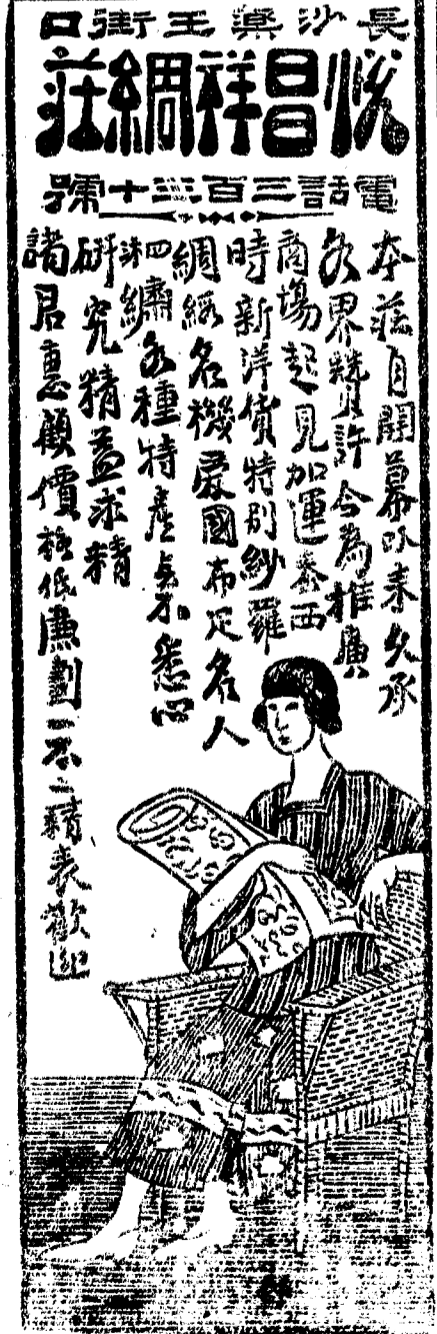 長沙藥王街口
悅昌祥綢莊
電話三百三十號
本莊自開幕以來久承
各界贊許今為推廣
商場起見加運泰西
時新洋貨特別紗羅
綢緞名機愛國布疋名人
繡各種特產無不悉心
研究精益求精
諸君惠顧價極低廉劃一不二藉表歡迎